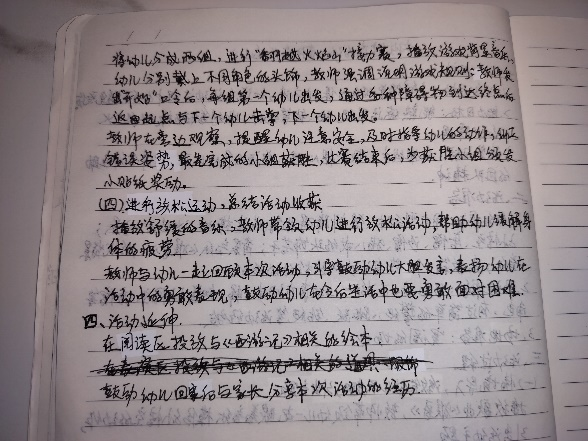 将幼儿分成两组，进行“智闯火焰山”接力赛，播放游戏背景音乐，
幼儿分别戴上不同角色的头饰，教师强调说明游戏规则：教师发
出“开始”口令后，每组第一个幼儿出发，通过各种障碍物到达终点后
返回起点与下一个幼儿击掌，下一个幼儿出发。
教师在旁边观察，提醒幼儿注意安全，及时指导幼儿的动作，纠正
错误姿势，最先完成的小组获胜，比赛结束后，为获胜小组颁发
小贴纸奖励。
（四）进行放松运动，总结活动收获
播放舒缓的音乐，教师带领幼儿进行放松活动，帮助幼儿缓解身
体的疲劳
教师与幼儿一起回顾本次活动，引导鼓励幼儿大胆发言，表扬幼儿在
活动中的勇敢表现，鼓励幼儿在今后生活中也要勇敢面对困难.
四、活动延伸.
在阅读区投放与《西游记》相关的绘本.
鼓励幼儿回家后与家长分享本次活动的经历